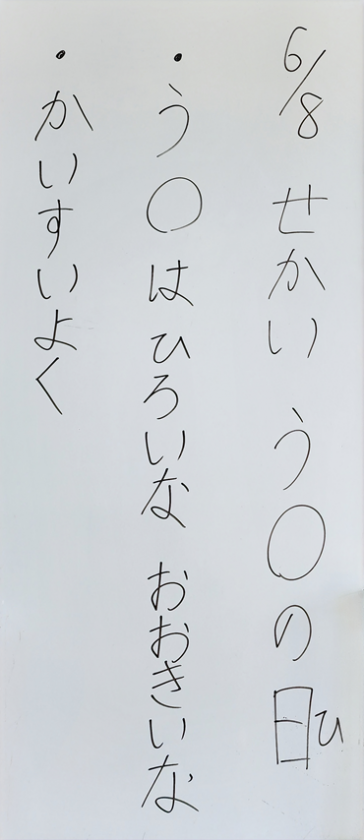 6/8 せかい う○の日ひ
・う○はひろいな おおきいな
・かいすいよく